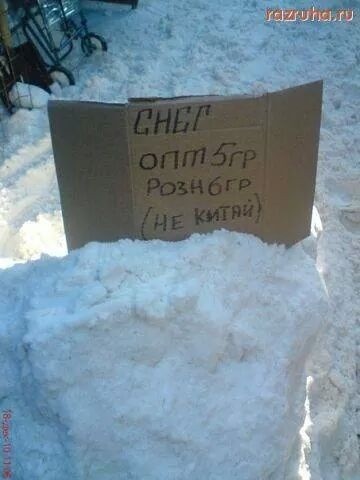 razruha.ru
СНЕГ
ОПТ 5 ГР
РОЗН 6 ГР
(НЕ КИТАЙ)